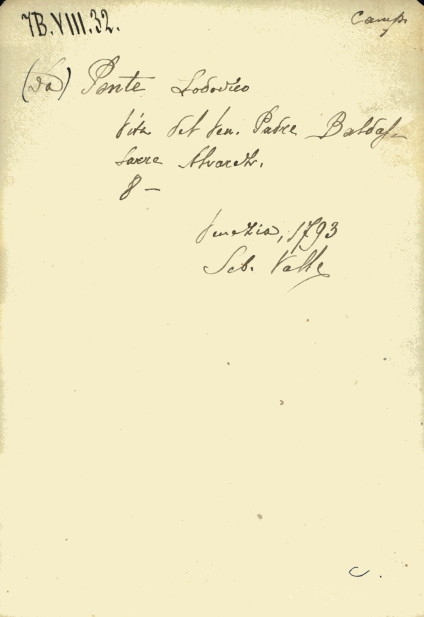 7B.VIII.32.
(da) Ponte Lodovico
Vita del Ven. Padre Baldas-
sarre Alvarez.
8-
Venezia, 1793
Seb. Valle
C.